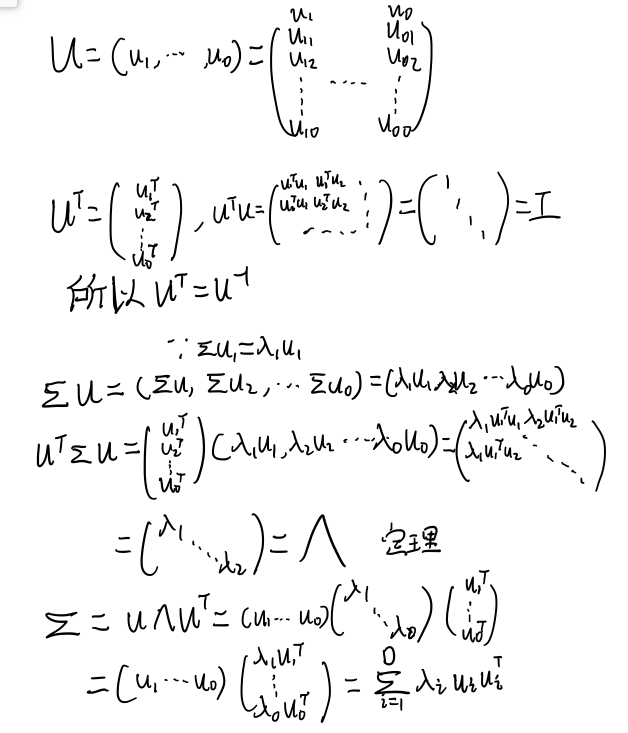 U = (u₁, ⋯, u₀) = ( u₁ u₀
u₁₁ u₀₁
u₁₂ u₀₂
⋮ ⋯⋯ ⋮
u₁₀ u₀₀ )
Uᵀ = ( u₁ᵀ u₂ᵀ ⋮ u₀ᵀ ), uᵀu = ( u₁ᵀu₁ u₁ᵀu₂ ⋮ u₂ᵀu₁ u₂ᵀu₂ ⋯ ) = ( 1 ⋱ 1 ) = I
所以 Uᵀ = U⁻¹
∵ Σu₁ = λ₁u₁
ΣU = (Σu₁ Σu₂, ⋯ Σu₀) = (λ₁u₁, λ₂u₂ ⋯ λ₀u₀)
UᵀΣU = ( u₁ᵀ u₂ᵀ ⋮ u₀ᵀ ) (λ₁u₁, λ₂u₂ ⋯ λ₀u₀) = ( λ₁u₁ᵀu₁ λ₂u₁ᵀu₂ λ₁u₁ᵀu₂ ⋱ )
= ( λ₁ ⋱ λ₂ ) = Λ 定理
Σ = UΛUᵀ = (u₁ ⋯ u₀) ( λ₁ ⋱ λ₀ ) ( u₁ᵀ ⋮ u₀ᵀ )
= (u₁ ⋯ u₀) ( λ₁u₁ᵀ ⋮ λ₀u₀ᵀ ) = Σᵢ₌₁⁰ λᵢ uᵢ uᵢᵀ